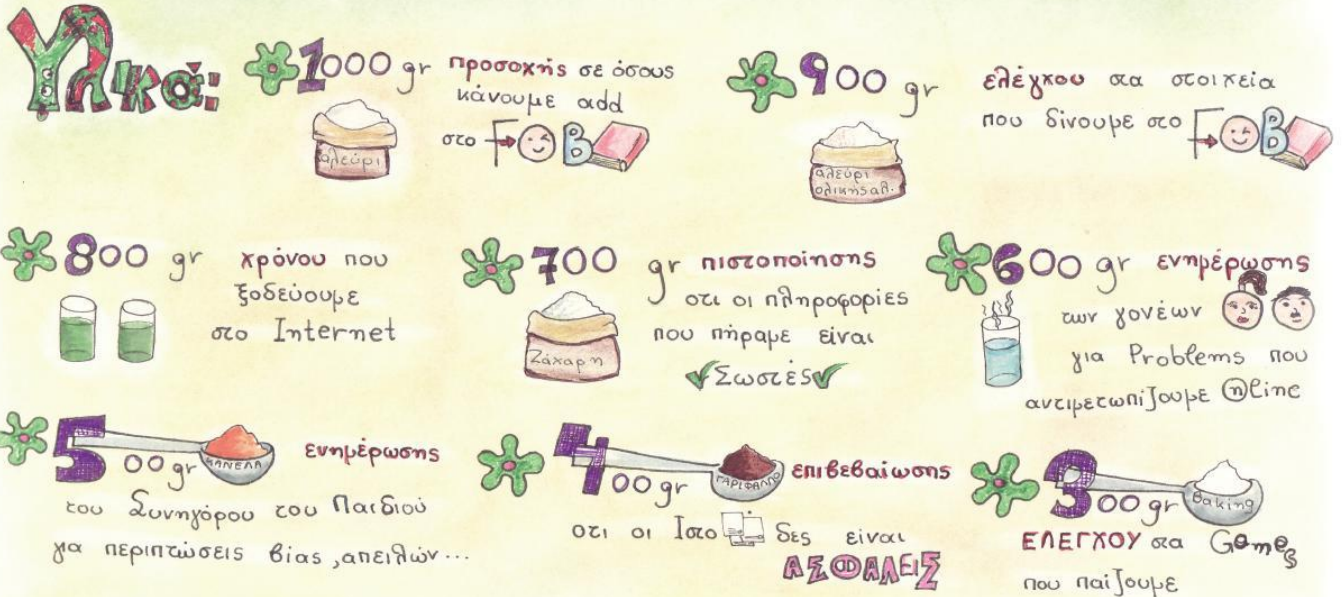 Υλικά:
1000 gr προσοχής σε όσους
κάνουμε add
στο F B
αλεύρι
900 gr ελέγχου στα στοιχεία
που δίνουμε στο F B
αλεύρι
ολικής αλ.
800 gr χρόνου που
ξοδεύουμε
στο Internet
700 gr πιστοποίησης
οτι οι πληροφορίες
που πήραμε είναι
Σωστές
Ζάχαρη
600 gr ενημέρωσης
των γονέων
για Problems που
αντιμετωπίζουμε online
500 gr ενημέρωσης
ΚΑΝΕΛΑ
του Συνηγόρου του Παιδιού
για περιπτώσεις βίας, απειλών...
400 gr επιβεβαίωσης
ΓΑΡΙΦΑΛΛΟ
οτι οι Ιστο δες είναι
ΑΣΦΑΛΕΙΣ
300 gr
Baking
ΕΛΕΓΧΟΥ στα Games
που παίζουμε